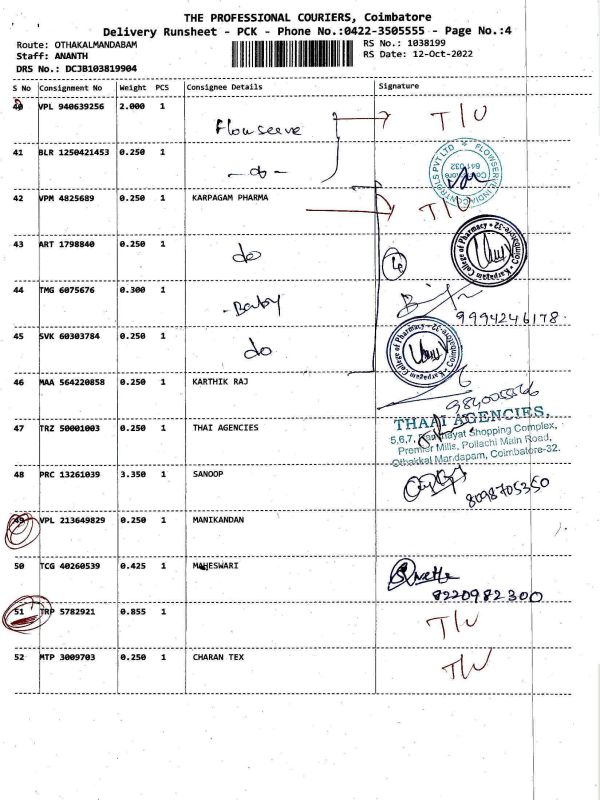 THE PROFESSIONAL COURIERS, Coimbatore
Delivery Runsheet - PCK - Phone No.:0422-3505555 - Page No.:4
Route: OTHAKALMANDABAM
RS No.: 1038199
Staff: ANANTH
RS Date: 12-Oct-2022
DRS No.: DCJB103819904
S No Consignment No Weight PCS Consignee Details Signature
40 VPL 940639256 2.000 1 Flowserve T/U
41 BLR 1250421453 0.250 1 -do-
42 VPM 4825689 0.250 1 KARPAGAM PHARMA T/U
43 ART 1798840 0.250 1 do
44 TMG 6075676 0.300 1 -Baby
9994246178.
45 SVK 60303784 0.250 1 do
46 MAA 564220858 0.250 1 KARTHIK RAJ
47 TRZ 50001003 0.250 1 THAI AGENCIES
THAAI AGENCIES,
Shopping Complex,
Premier Mills, Pollachi Main Road,
Othakkal Mandapam, Coimbatore-32.
48 PRC 13261039 3.350 1 SANOOP
8098705350
49 VPL 213649829 0.250 1 MANIKANDAN
50 TCG 40260539 0.425 1 MAHESWARI
8220982300
51 TRP 5782921 0.855 1 T/U
52 MTP 3009703 0.250 1 CHARAN TEX T/U